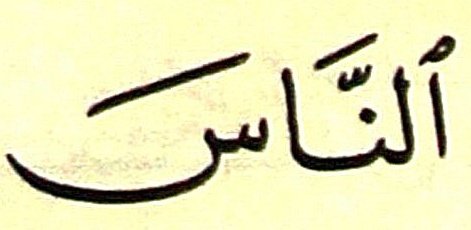 ٱلنَّاسَ